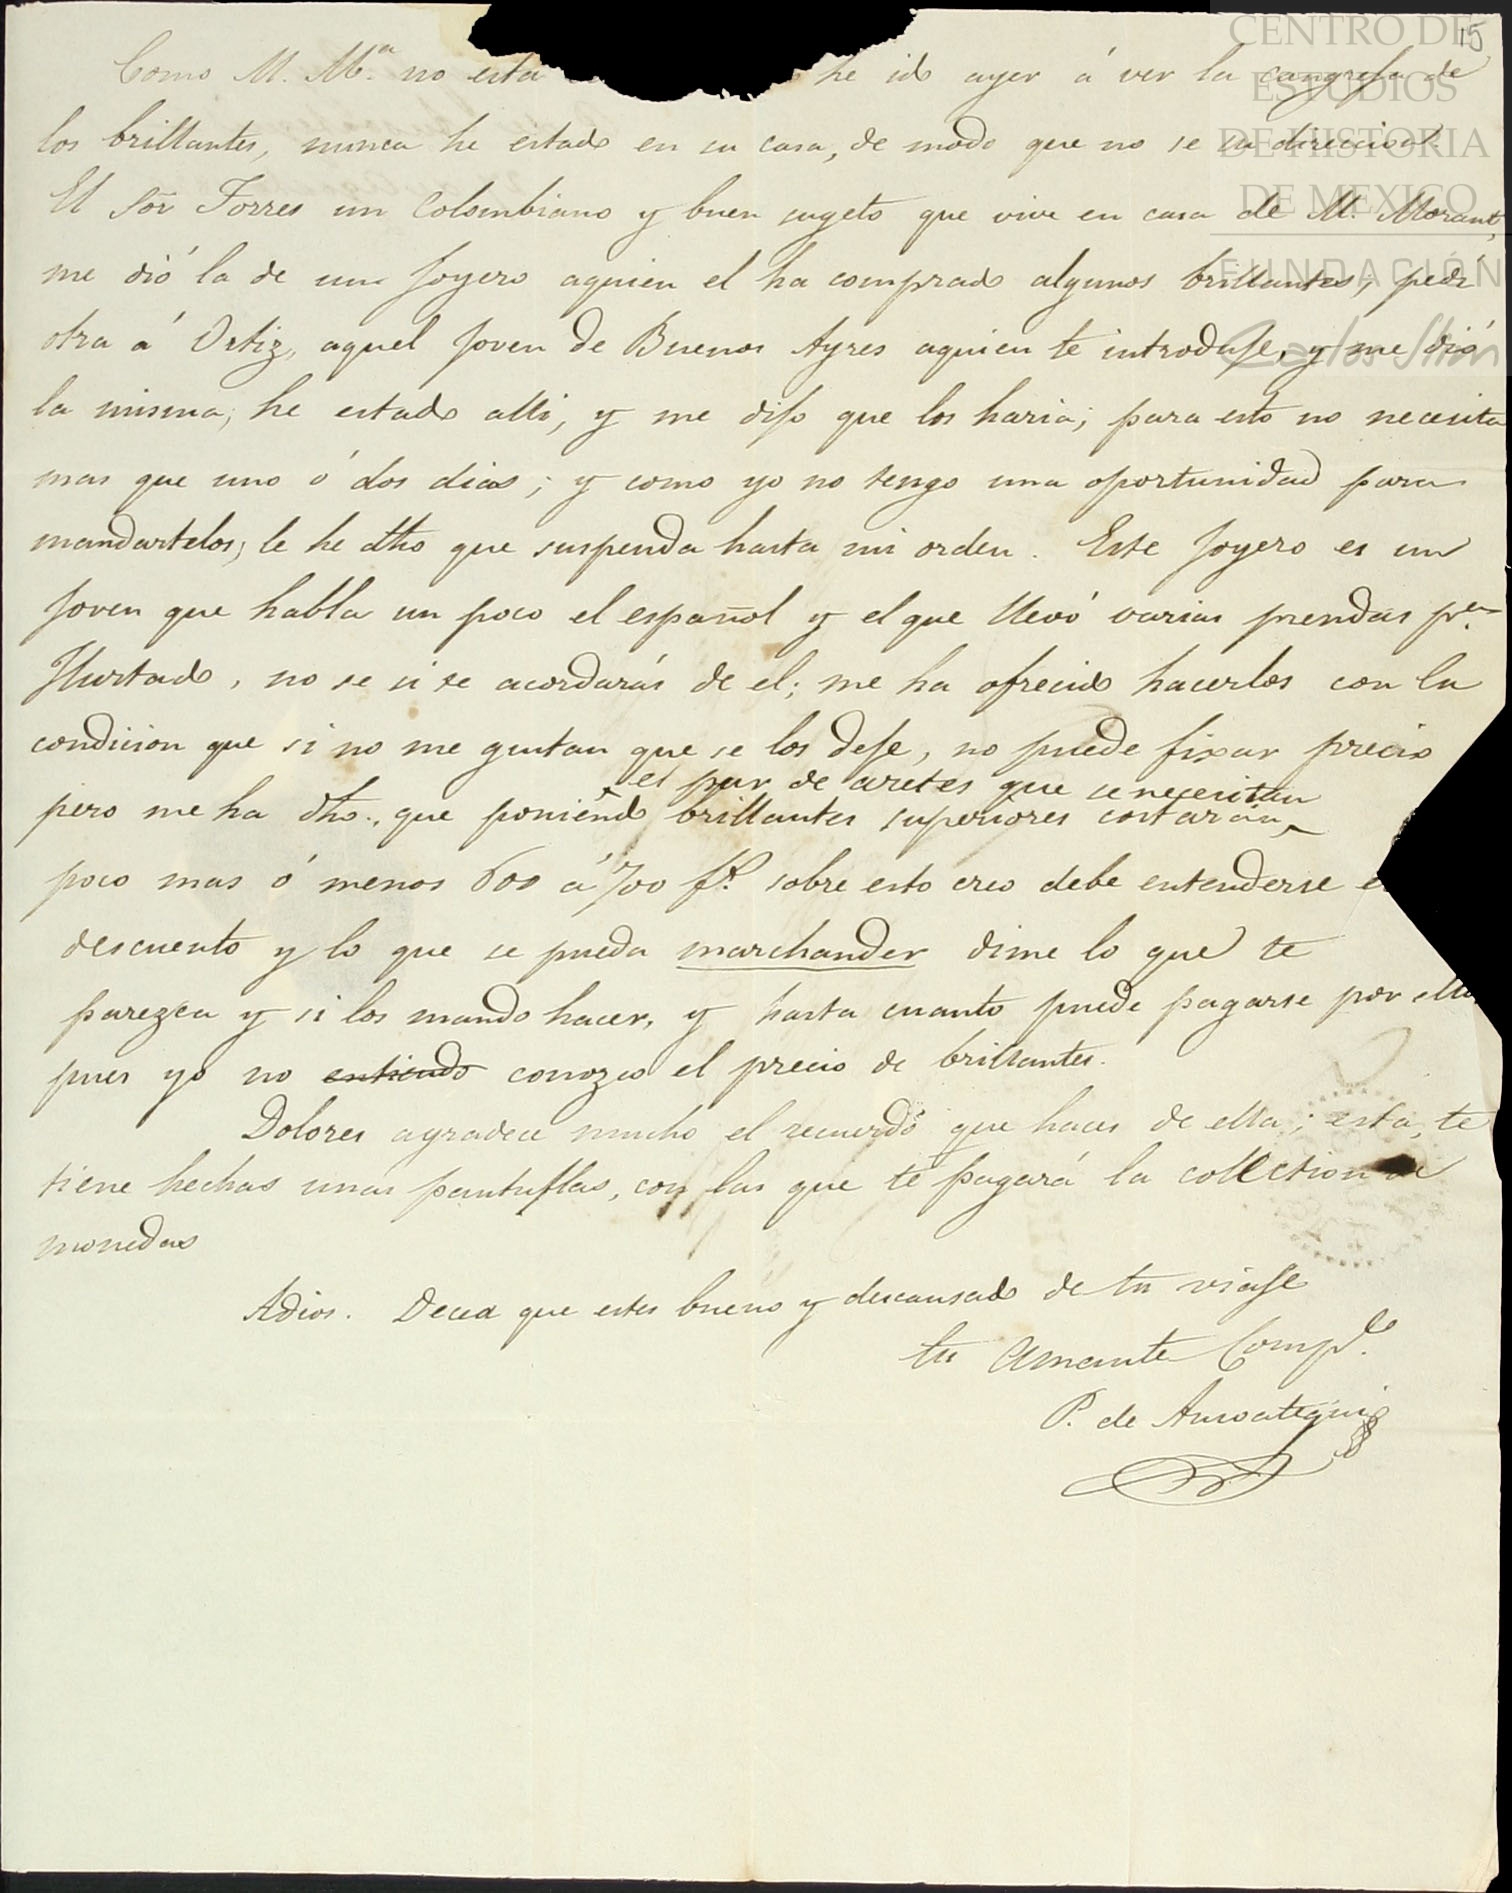 15
Como M. M.ª no esta he ido ayer á ver la cangrefa de
los brillantes, nunca he estado en su casa, de modo que no se su direccion.
El Sõr Torres un Colombiano y buen sugeto que vive en casa de M. Morant,
me dió la de un Joyero aquien el ha comprado algunos brillantes; pedi
otra á Ortiz, aquel Joven de Buenos Ayres aquien te introduje, y me dió
la misma; he estado alli, y me dijo que los haria; para esto no necesita
mas que uno ó dos dias; y como yo no tengo una oportunidad para
mandartelos, le he dho que suspenda hasta mi orden. Este Joyero es un
Joven que habla un poco el español y el que llevó varias prendas pª
Hurtado, no se si te acordarás de el; me ha ofrecido hacerlos con la
condicion que si no me gustan que se los deje, no puede fixar precio
el par de aretes que se necesitan
pero me ha dho., que poniendo brillantes superiores costarán
poco mas ó menos 600 á 700 fs. sobre esto creo debe entenderse
descuento y lo que se pueda marchander dime lo que te
parezca y si los mando hacer, y hasta cuanto puede pagarse por
pues yo no entiendo conozco el precio de brillantes.
Dolores agradece mucho el recuerdo que haces de ella; esta, te
tiene hechas unas pantuflas, con las que te pagará la collection de
monedas
Adios. Decea que estes bueno y descansado de tu viaje
tu amante Comp.de
P. de Ansoategui
CENTRO DE
ESTUDIOS
DE HISTORIA
DE MEXICO
FUNDACIÓN
Carlos Slim